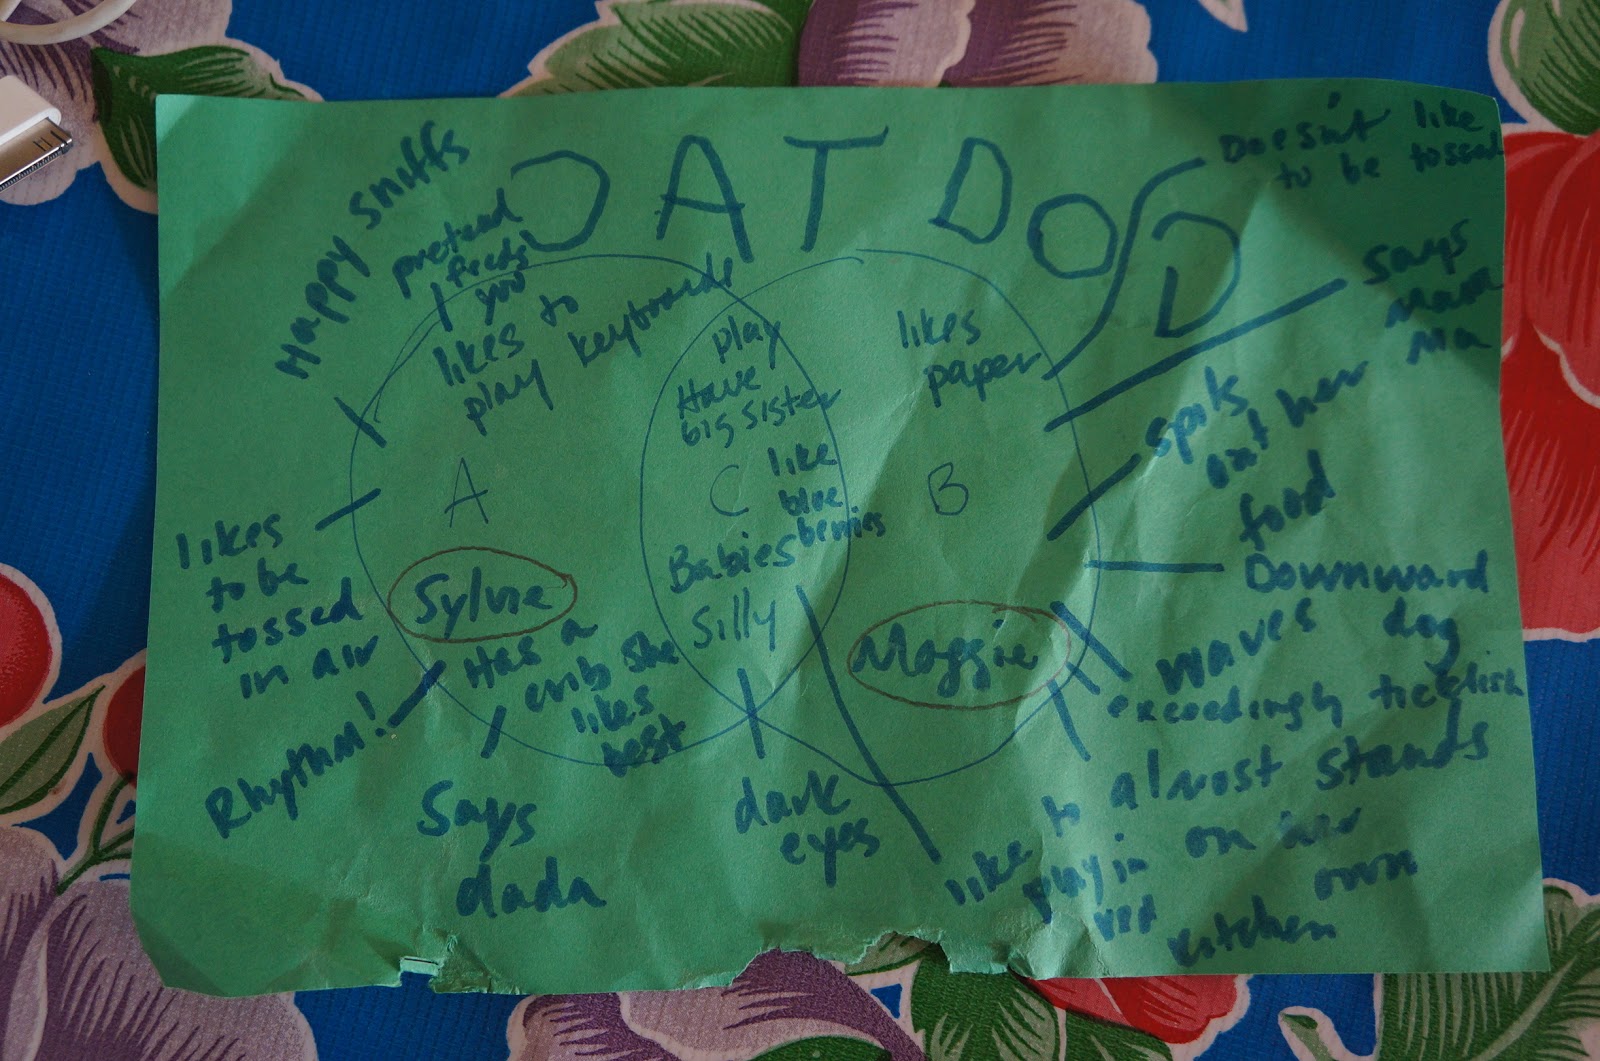 DAT DOD
D
Happy sniffs
pretend
feeds
you
likes to
play keyboards
likes
to be
tossed
in air
Rhythm!
A
Sylvie
Has a
crib she
likes
best
Says
dada
play
Have
big sister
C
like
blue
berries
Babies
Silly
dark
eyes
like to
play in
kitchen
likes
paper
B
Maggie
Doesn't like
to be tossed
says
Mama
Ma
spits
out her
food
Downward
dog
waves
exceedingly ticklish
almost stands
on her
own